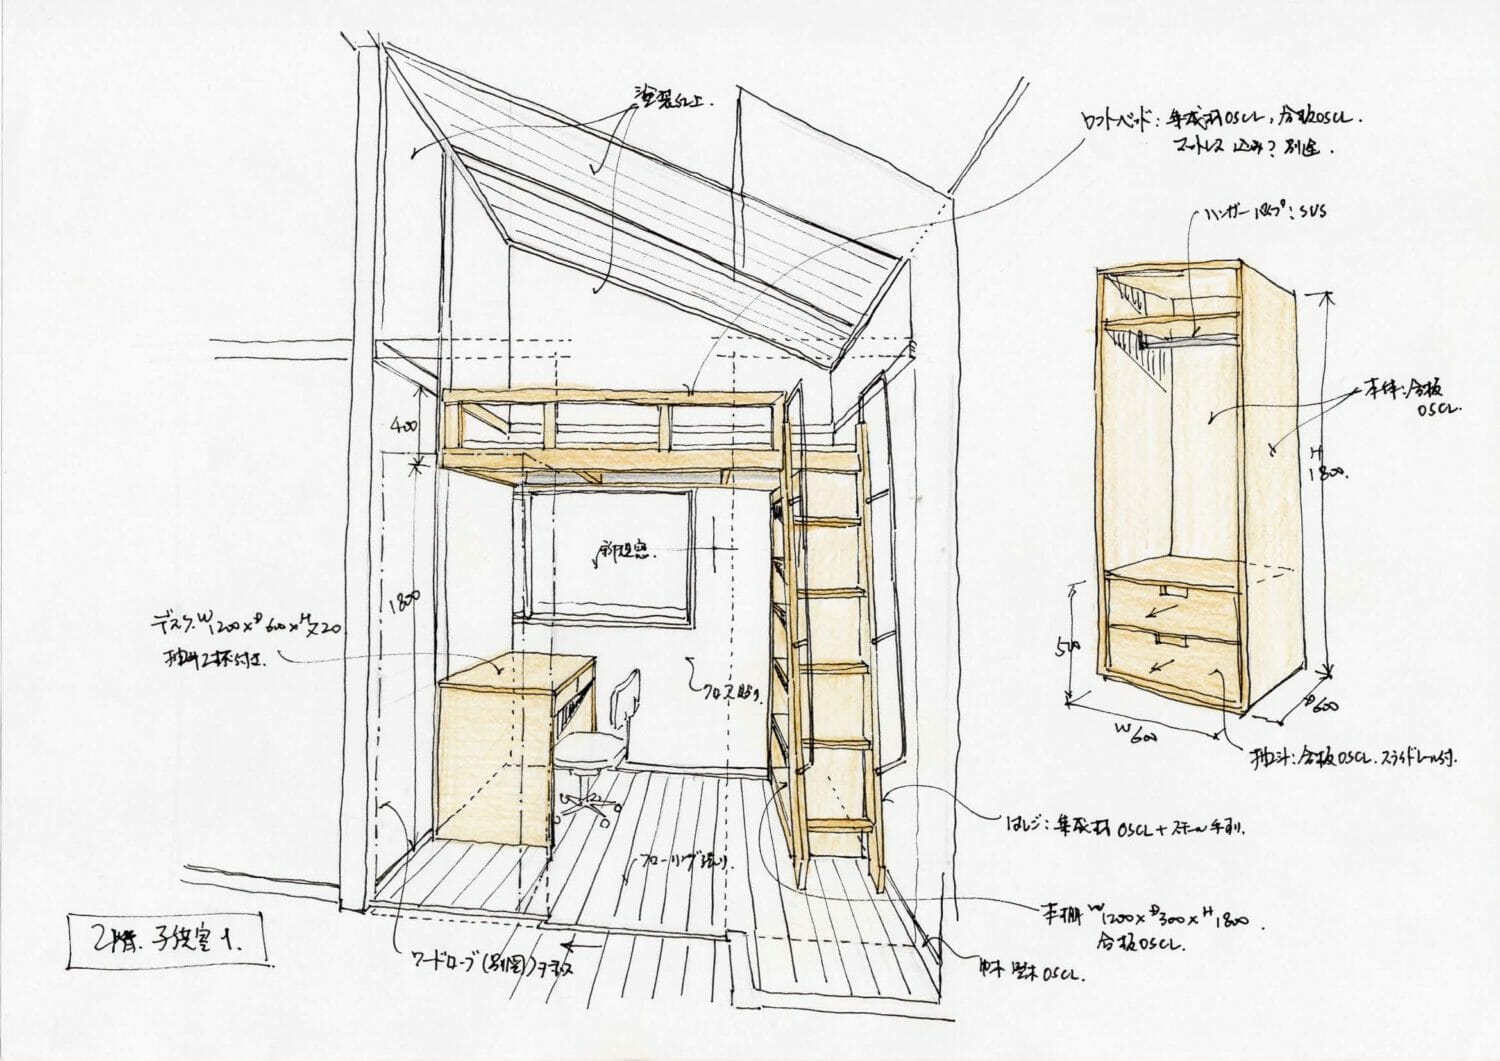 塗装仕上.
ロフトベッド：集成材OSCL, 合板OSCL.
マットレス 込み？別途.
ハンガーパイプ：SUS
本体：合板
OSCL.
H
1800.
400
1800
新規窓.
デスク W1200×D600×H720
抽斗2杯付き.
クロス貼り.
500
W600
D600
抽斗：合板OSCL.スライドレール付.
はしご：集成材OSCL+スチール手すり.
フローリング張り.
本棚 W1200×D300×H1800
合板OSCL.
2階. 子供室1.
ワードローブ(別図)
巾木 堅木OSCL.